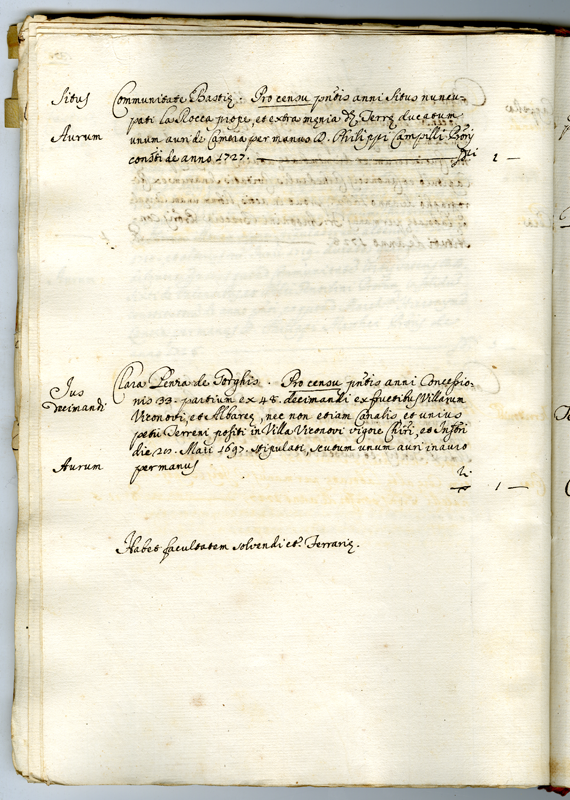 Situs
Communitate Bastiæ. Pro censu pñtis anni Situs nuncu-
pati la Rocca prope, et extra mænia d. Terræ ducatum
Aurum
unum auri de Camera per manus D. Philippi Campilli
consti de anno 1727.
1 —
Jus
Decimandi
Clara Penna de Torghis. Pro censu pñtis anni Concessio-
nis 33. partium ex 48. decimandi ex fructibus Villarum
Viconovi, et Albareæ, nec non etiam Canalis et unius
petij Terreni positi in Villa Viconovi vigore Chiri, et Instri
die 20. Maii 1697. stipulati, scutum unum auri in auro
Aurum
per manus
1 —
Habet facultatem solvendi et.ᵃ Ferrariæ.